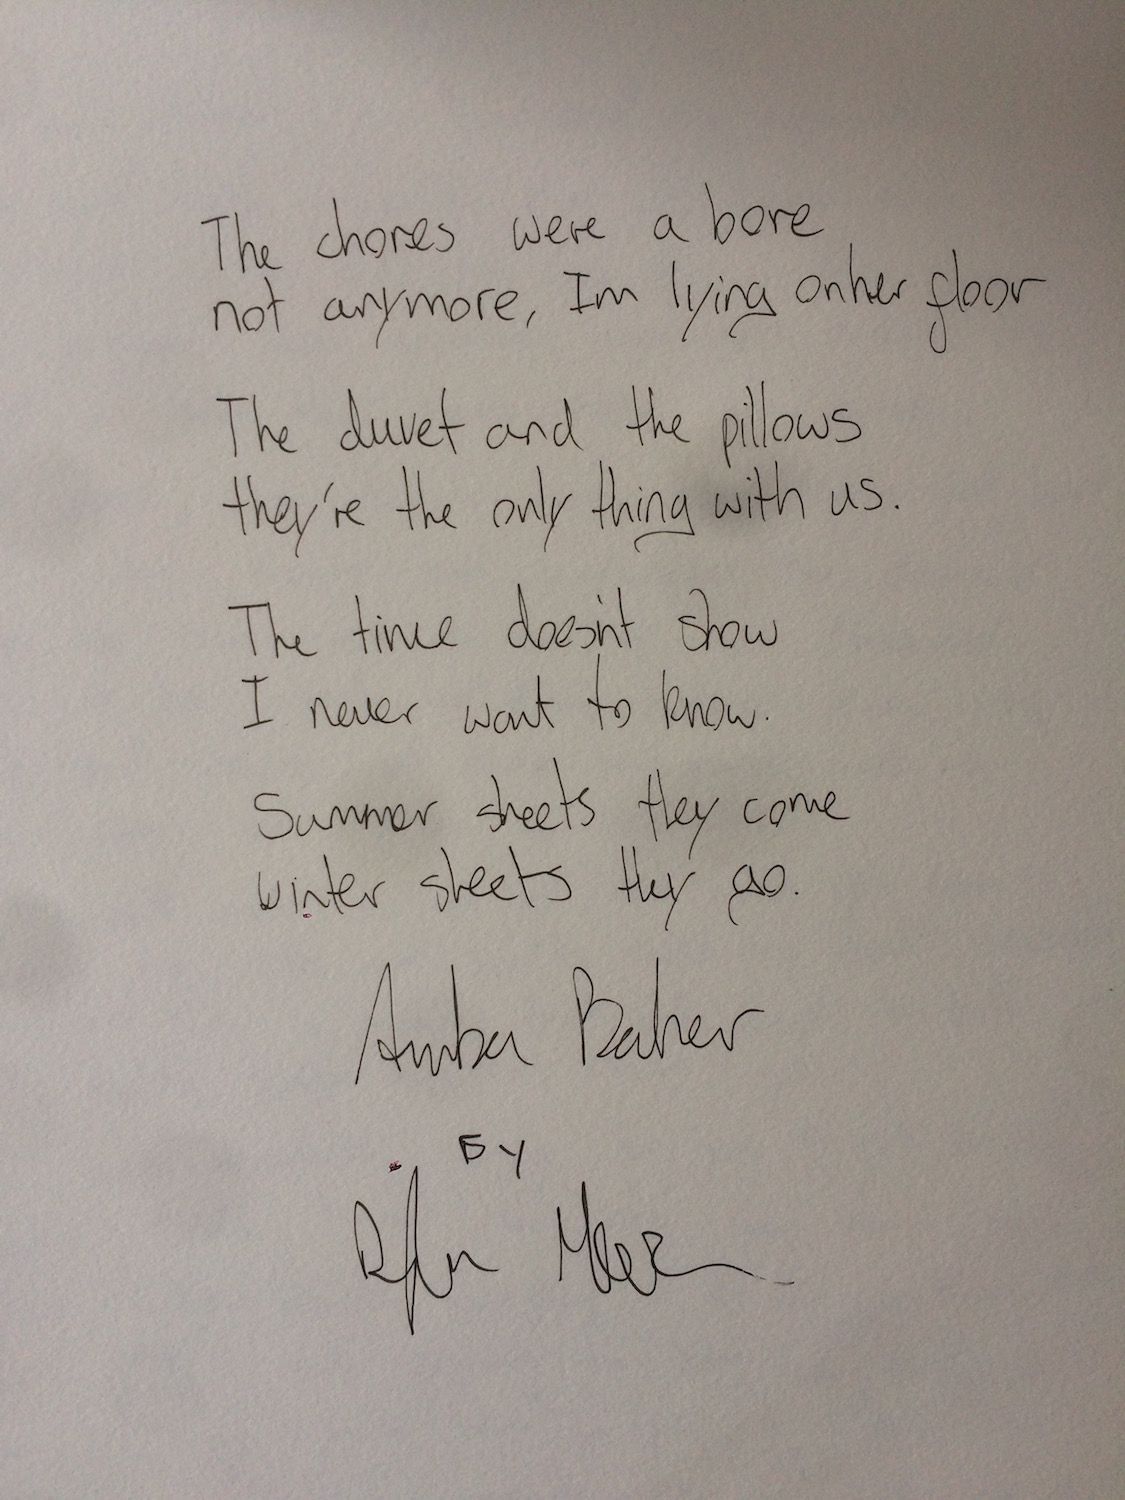 The chores were a bore
not anymore, Im lying on her floor
The duvet and the pillows
they're the only thing with us.
The time doesn't show
I never want to know.
Summer sheets they come
winter sheets they go.
Amba
By